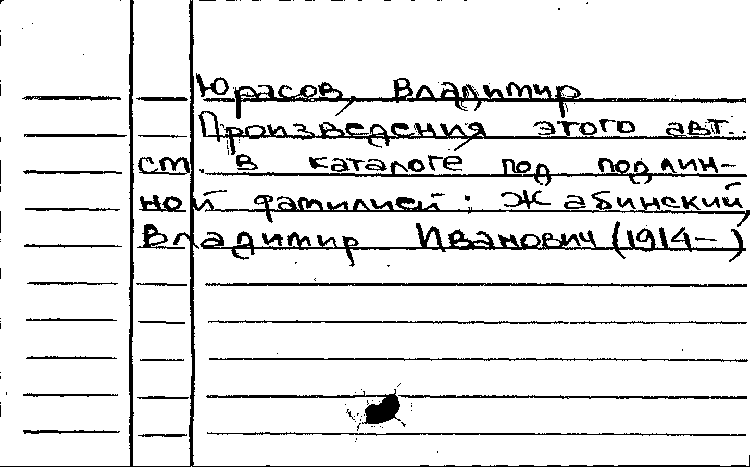 Юрасов, Владимир
Произведения этого авт.
см. в каталоге под подлин-
ной фамилией: Жабинский,
Владимир Иванович (1914- )